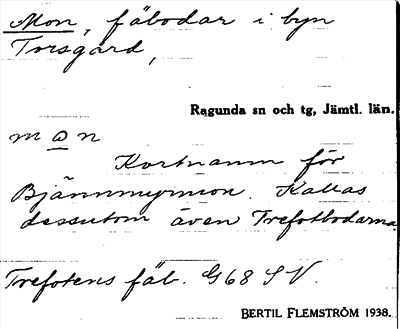 Mon, fäbodar i byn
Torsgård,
Ragunda sn och tg, Jämtl. län.
mɷn
Kortnamn för
Bjännmyrmon. Kallas
dessutom även Trefotbodarna.
Trefotens fäb. G68 SV.
BERTIL FLEMSTRÖM 1938.